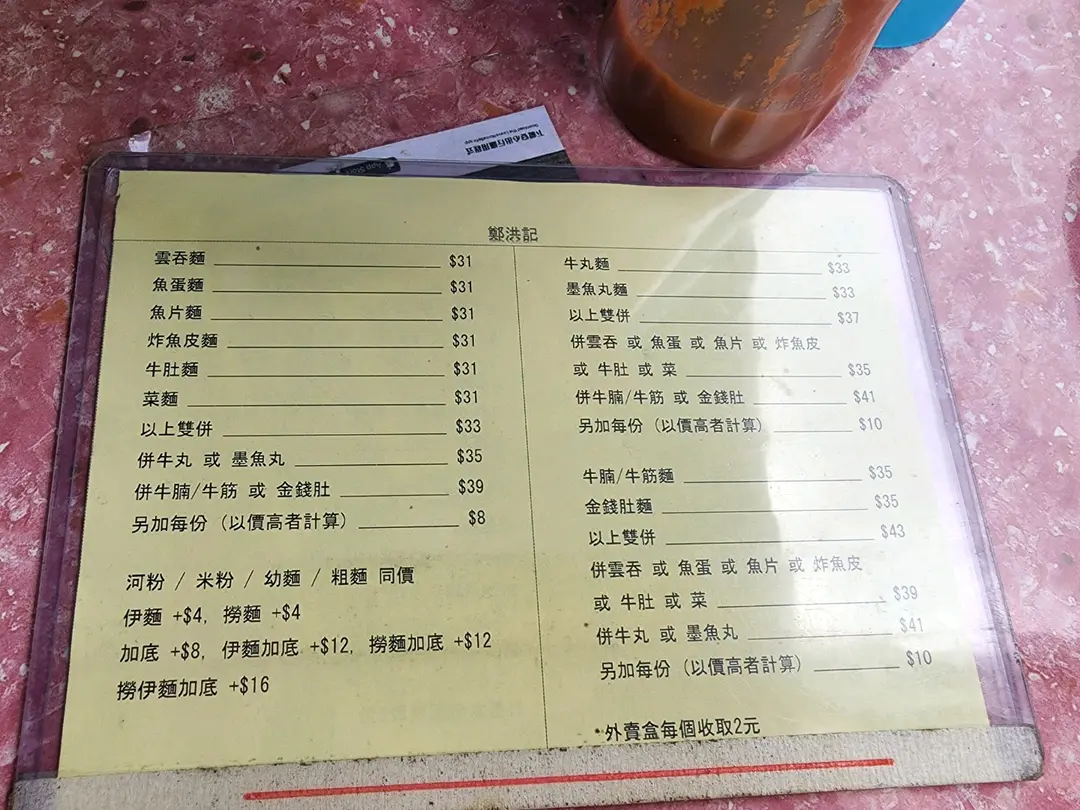 下載安心出行應用程式
Download the LeaveHomeSafe app
App Store
鄭洪記
雲吞麵 $31
魚蛋麵 $31
魚片麵 $31
炸魚皮麵 $31
牛肚麵 $31
菜麵 $31
以上雙併 $33
併牛丸 或 墨魚丸 $35
併牛腩/牛筋 或 金錢肚 $39
另加每份 (以價高者計算) $8
河粉 / 米粉 / 幼麵 / 粗麵 同價
伊麵 +$4, 撈麵 +$4
加底 +$8, 伊麵加底 +$12, 撈麵加底 +$12
撈伊麵加底 +$16
牛丸麵 $33
墨魚丸麵 $33
以上雙併 $37
併雲吞 或 魚蛋 或 魚片 或 炸魚皮
或 牛肚 或 菜 $35
併牛腩/牛筋 或 金錢肚 $41
另加每份 (以價高者計算) $10
牛腩/牛筋麵 $35
金錢肚麵 $35
以上雙併 $43
併雲吞 或 魚蛋 或 魚片 或 炸魚皮
或 牛肚 或 菜 $39
併牛丸 或 墨魚丸 $41
另加每份 (以價高者計算) $10
*外賣盒每個收取2元